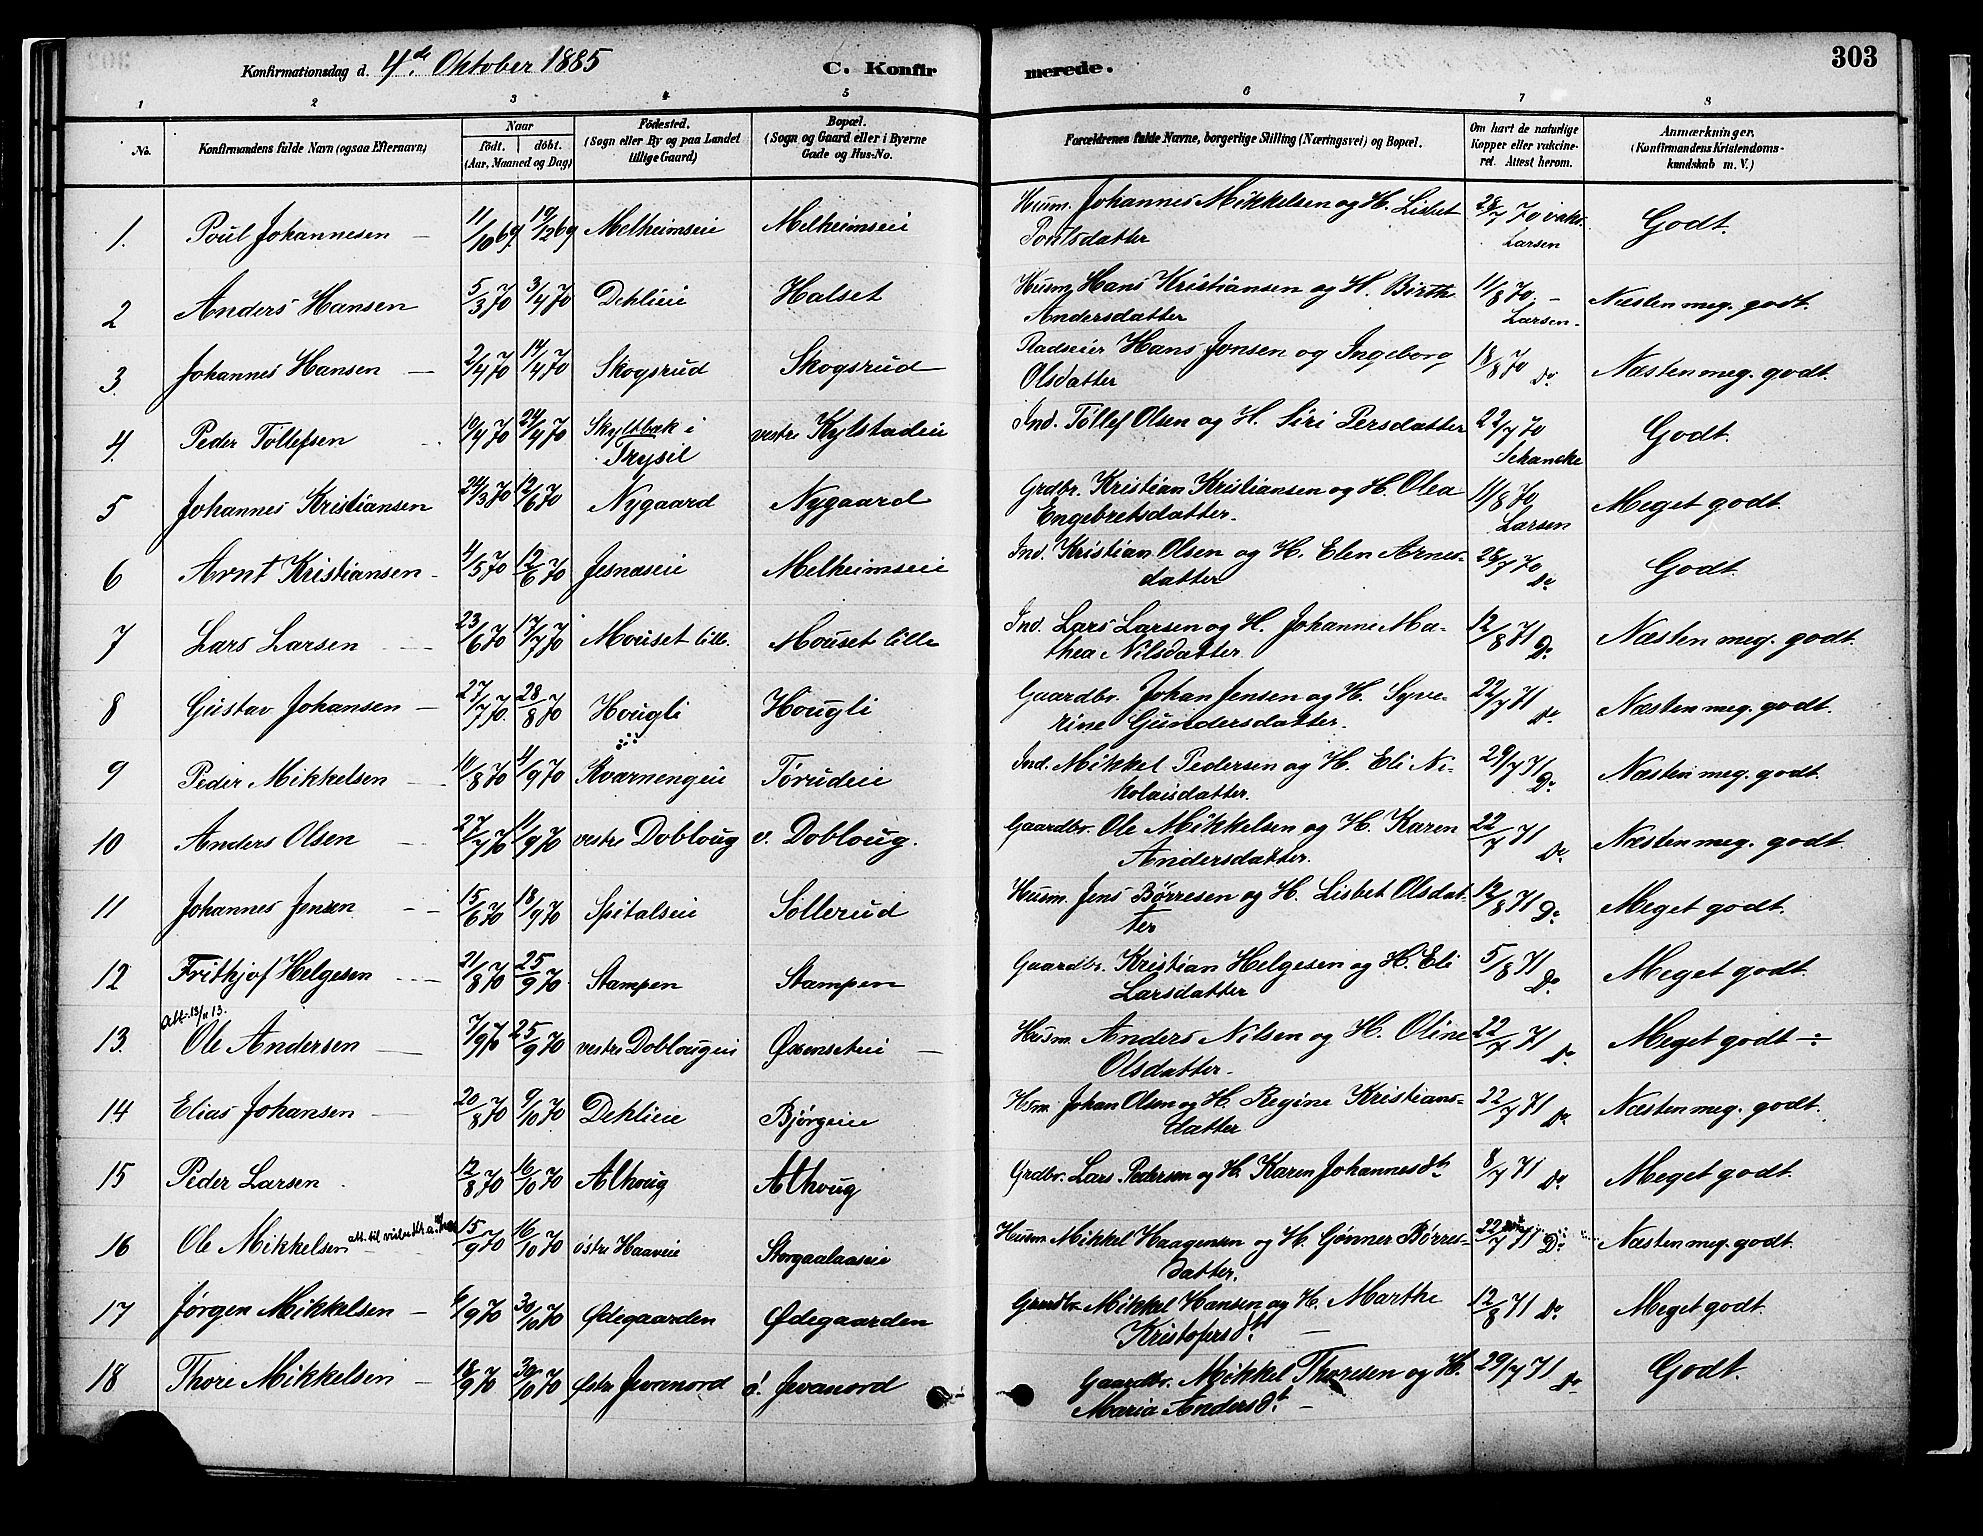 Konfirmationsdag d. 4de Oktober 1885 C. Konfirmerede. 303
1 2 3 4 5 6 7 8
No. Konfirmandens fulde Navn (ogsaa Efternavn) Naar födt. döbt. (Aar, Maaned og Dag) Födested. (Sogn eller By og paa Landet tillige Gaard) Bopæl. (Sogn og Gaard eller i Byerne Gade og Hus-No. Forældrenes fulde Navne, borgerlige Stilling (Næringsvei) og Bopæl. Om havt de naturlige Kopper eller vakcineret. Attest herom. Anmærkninger. (Konfirmandens Kristendomskundskab m. V.)
1. Poul Johannesen 11/10 69 19/12 69 Melheimseie Melheimseie Husm. Johannes Mikkelsen og H. Lisbet Poulsdatter 28/7 70 Larsen Godt.
2 Anders Hansen 5/3 70 3/4 70 Dehlieie Halset Husm. Hans Kristiansen og H. Birthe Andersdatter 11/8 70. Larsen. Næsten meg. godt.
3. Johannes Hansen 2/4 70 14/4 70 Skogsrud Skogsrud Pladseier Hans Jonsen og Ingeborg Olsdatter 18/8 70 Do Næsten meg. godt.
4. Peder Tollefsen 10/4 70 24/4 70 Skyltbæk i Trysil vestre Kylstadeie Ind. Tollef Olsen og H. Siri Persdatter 22/7 70 Schancke Godt.
5 Johannes Kristiansen 24/3 70 12/6 70 Nygaard Nygaard Grdbr. Kristian Kristiansen og H. Olea Engebretsdatter. 11/8 70 Larsen Meget godt.
6 Arnt Kristiansen 4/5 70 12/6 70 Jesnæseie Melheimseie Ind. Kristian Olsen og H. Elen Arnesdatter 28/7 70 Do Godt.
7 Lars Larsen 23/6 70 17/7 70 Mouset lille. Mouset lille Ind. Lars Larsen og H. Johanne Mathea Nilsdatter. 12/8 71 Do Næsten meg. godt.
8 Gustav Johansen 27/7 70. 28/8 70 Hougli Hougli Gaardbr. Johan Jensen og H. Syverine Gundersdatter. 22/7 71 Do Næsten meg. godt.
9 Peder Mikkelsen 10/8 70 11/9 70 Kværnengeie Torudeie Ind. Mikkel Pedersen og H. Eli Nikolaisdatter. 29/7 71 Do Næsten meg. godt.
10 Anders Olsen 27/7 70 11/9 70 vestre Dobloug v. Dobloug. Gaardbr. Ole Mikkelsen og H. Karen Andersdatter. 22/7 71 Do Næsten meg. godt.
11 Johannes Jensen 15/6 70 18/9 70 Spitalseie Sollerud Husm. Jens Børresen og H. Lisbet Olsdatter 12/8 71 Do Meget godt.
12 Frithjof Helgesen 21/8 70 25/9 70 Stampen Stampen Gaardbr. Kristian Helgesen og H. Eli Larsdatter 5/8 71 Do Meget godt.
Att. 13/11 13.
13. Ole Andersen 7/9 70 25/9 70 vestre Doblougeie Øxenseteie Husm. Anders Nilsen og H. Oline Olsdatter. 22/7 71 Do Meget godt ÷
14 Elias Johansen 20/8 70 9/10 70 Dehlieie Bjørgeeie Hsm. Johan Olsen og H. Regine Kristiansdatter 22/7 71 Do Næsten meg. godt.
15 Peder Larsen 12/8 70 16/10 70 Alhoug Alhoug Grdbr. Lars Pedersen og H. Karen Johannesdtr 8/7 71 Do Meget godt.
16 Ole Mikkelsen 15/9 70 16/10 70 østre Haaveie Storgaalaaseie Husm Mikkel Haagensen og H. Gønner Børresdatter. 22/7 71 Do Næsten meg. godt.
17 Jørgen Mikkelsen 6/9 70 30/10 70 Ødegaarden Ødegaarden Gaardbr. Mikkel Hansen og H. Marthe Kristofersdtr 12/8 71 Do Meget godt.
18 Thore Mikkelsen 18/9 70 30/10 70 Østre Jevanord ø. Jevanord Gaardbr. Mikkel Thoresen og H. Maria Andersdtr 29/7 71 Do Godt.